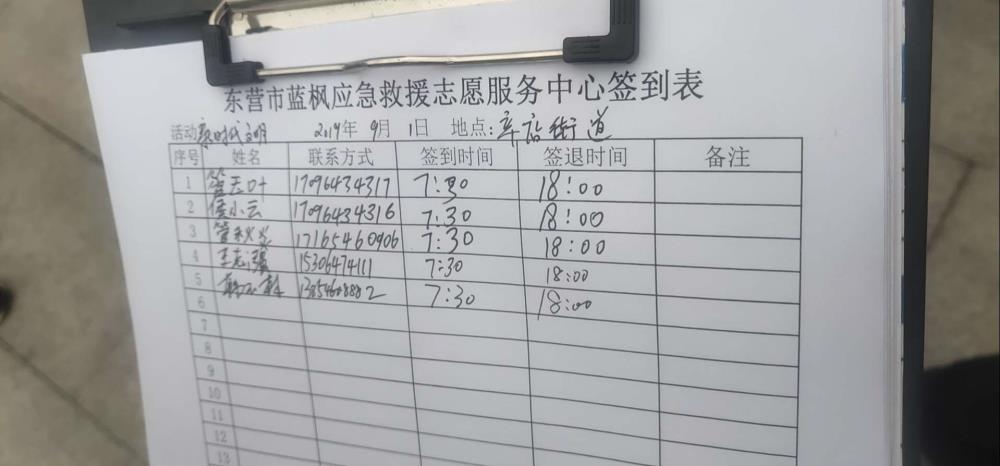 东营市蓝枫应急救援志愿服务中心签到表
活动 时代文明 2019年 9月 1日 地点: 车站街道
序号 姓名 联系方式 签到时间 签退时间 备注
1 管天叶 17096434317 7:30 18:00
2 侯小云 17096434316 7:30 18:00
3 管秋炎 17165460906 7:30 18:00
4 王志强 15306474111 7:30 18:00
5 7:30 18:00
6
7
8
9
10
11
12
13